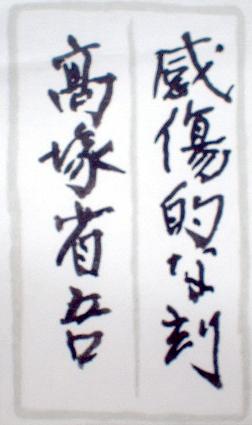 感傷的な刻
高塚省吾